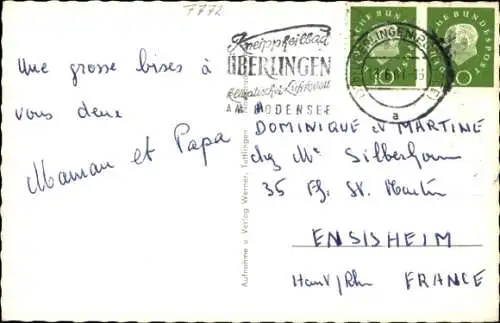 7772
Une grosse bises à
vous deux
Maman et Papa
Kneippheilbad
ÜBERLINGEN
AM BODENSEE
ÜBERLINGEN
a
DEUTSCHE BUNDESPOST
10
DEUTSCHE BUNDESPOST
Aufnahme u. Verlag Werner, Tuttlingen
DOMINIQUE et MARTINE
chez Mr Silberhorn
35 Fg. St. Martin
ENSISHEIM
Haut/Rhin FRANCE